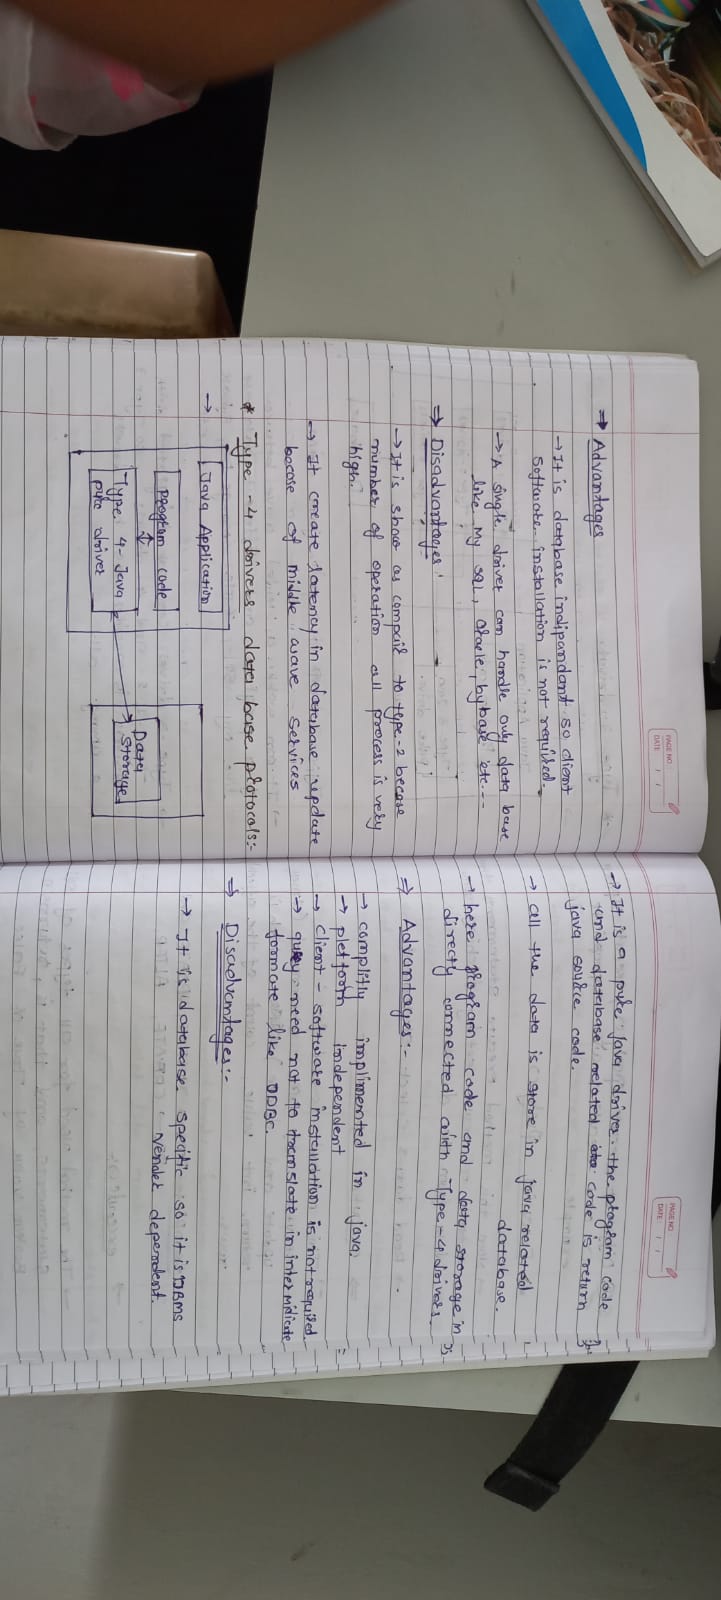 PAGE NO.:
DATE: / /
⇒ Advantages
→ It is database indipandant so client
software installation is not required.
→ A single driver can handle only data base
like My SQL, Oracle, bybase etc...
⇒ Disadvantages :
→ It is show as compair to type-2 becose
number of operation all process is very
high.
→ It create latency in database update
becose of middle wave services
* Type -4 drivers data base protocals:-
→
Java Application
Program code
Type 4- Java
pure driver
Data
Storage
PAGE NO.:
DATE: / /
→ It is a pure java driver. the program code
and database related code is return
java source code.
→ all the data is store in java related
database.
→ here program code and data storage in
directy connected with Type-4 drivers.
⇒ Advantages:-
→ complitly implimented in java.
→ pletform independent
→ client - software installation is not required.
→ query need not to translate in inter midicate
formate like ODBC.
⇒ Disadvantages:-
→ It is database specific so it is DBMS
vendor dependent.